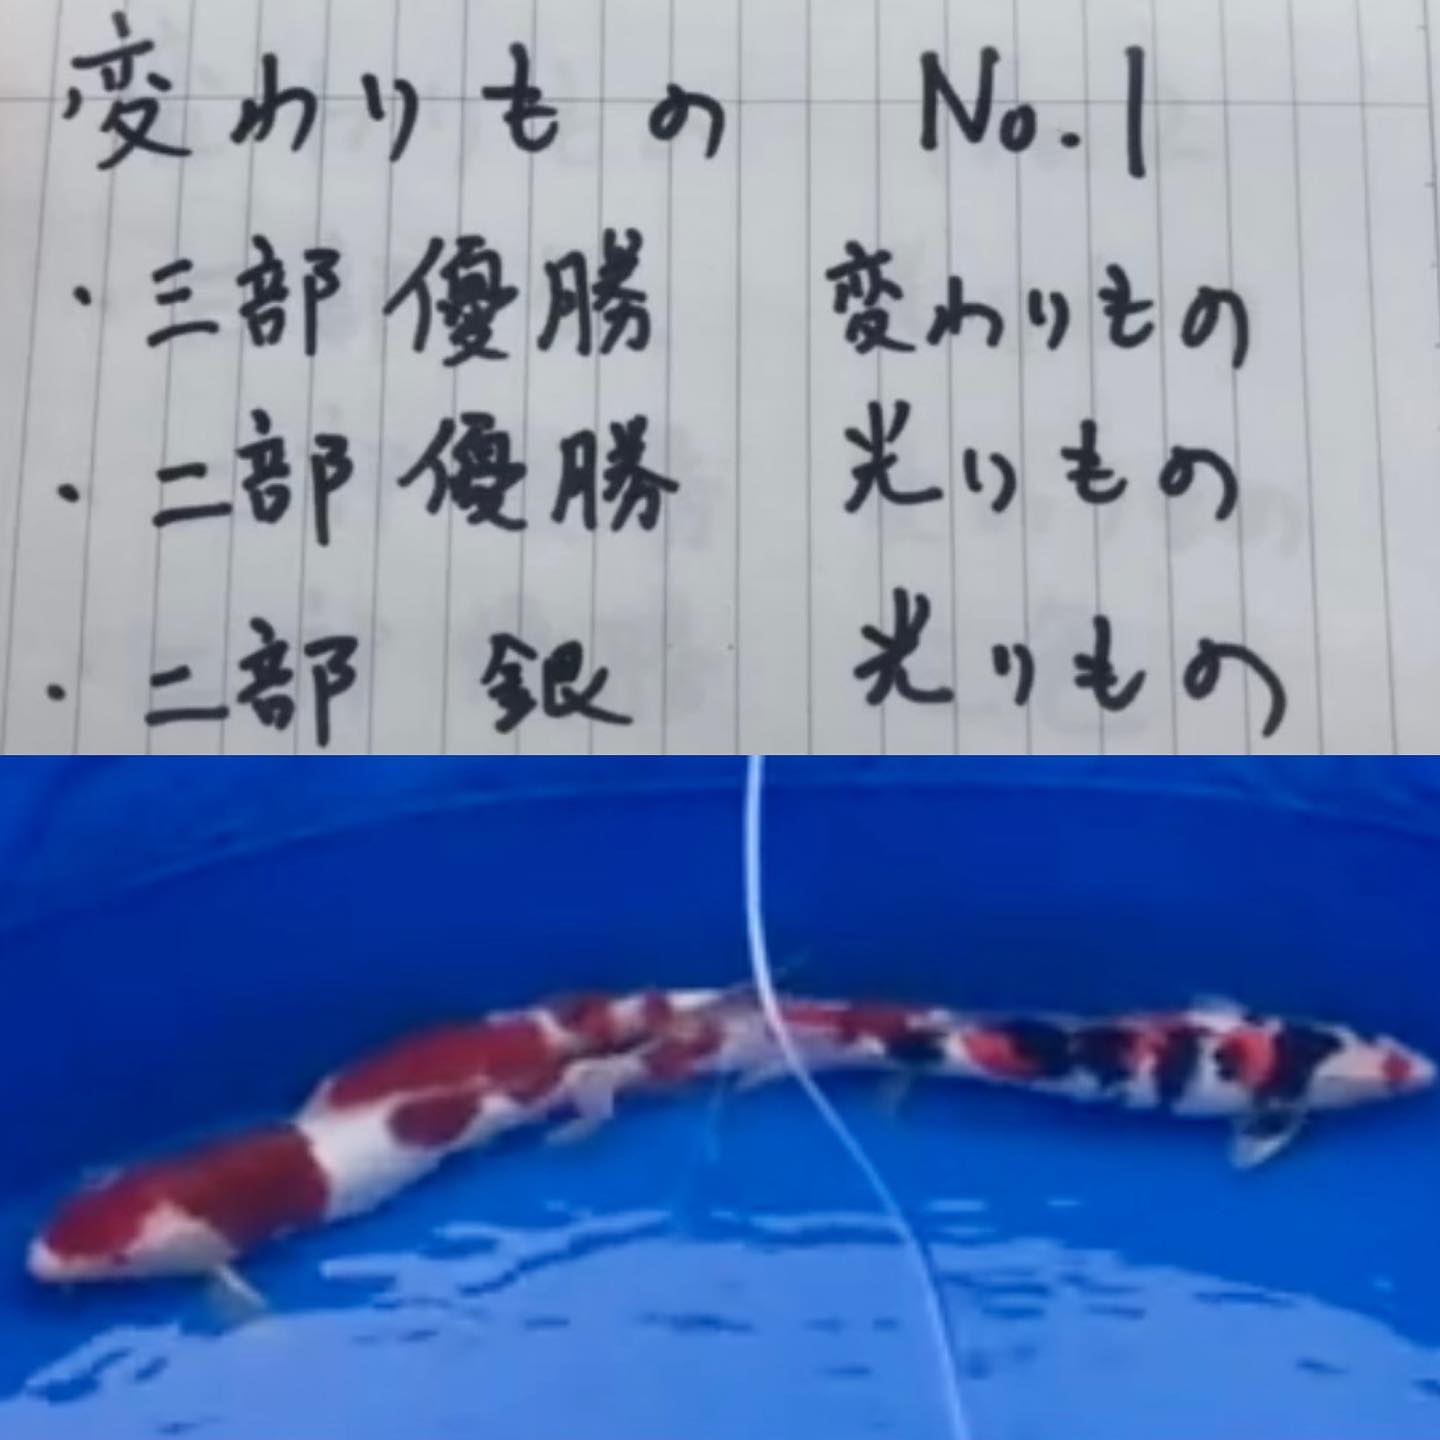 変わりもの No.1
・三部優勝 変わりもの
・二部優勝 光りもの
・二部 銀 光りもの